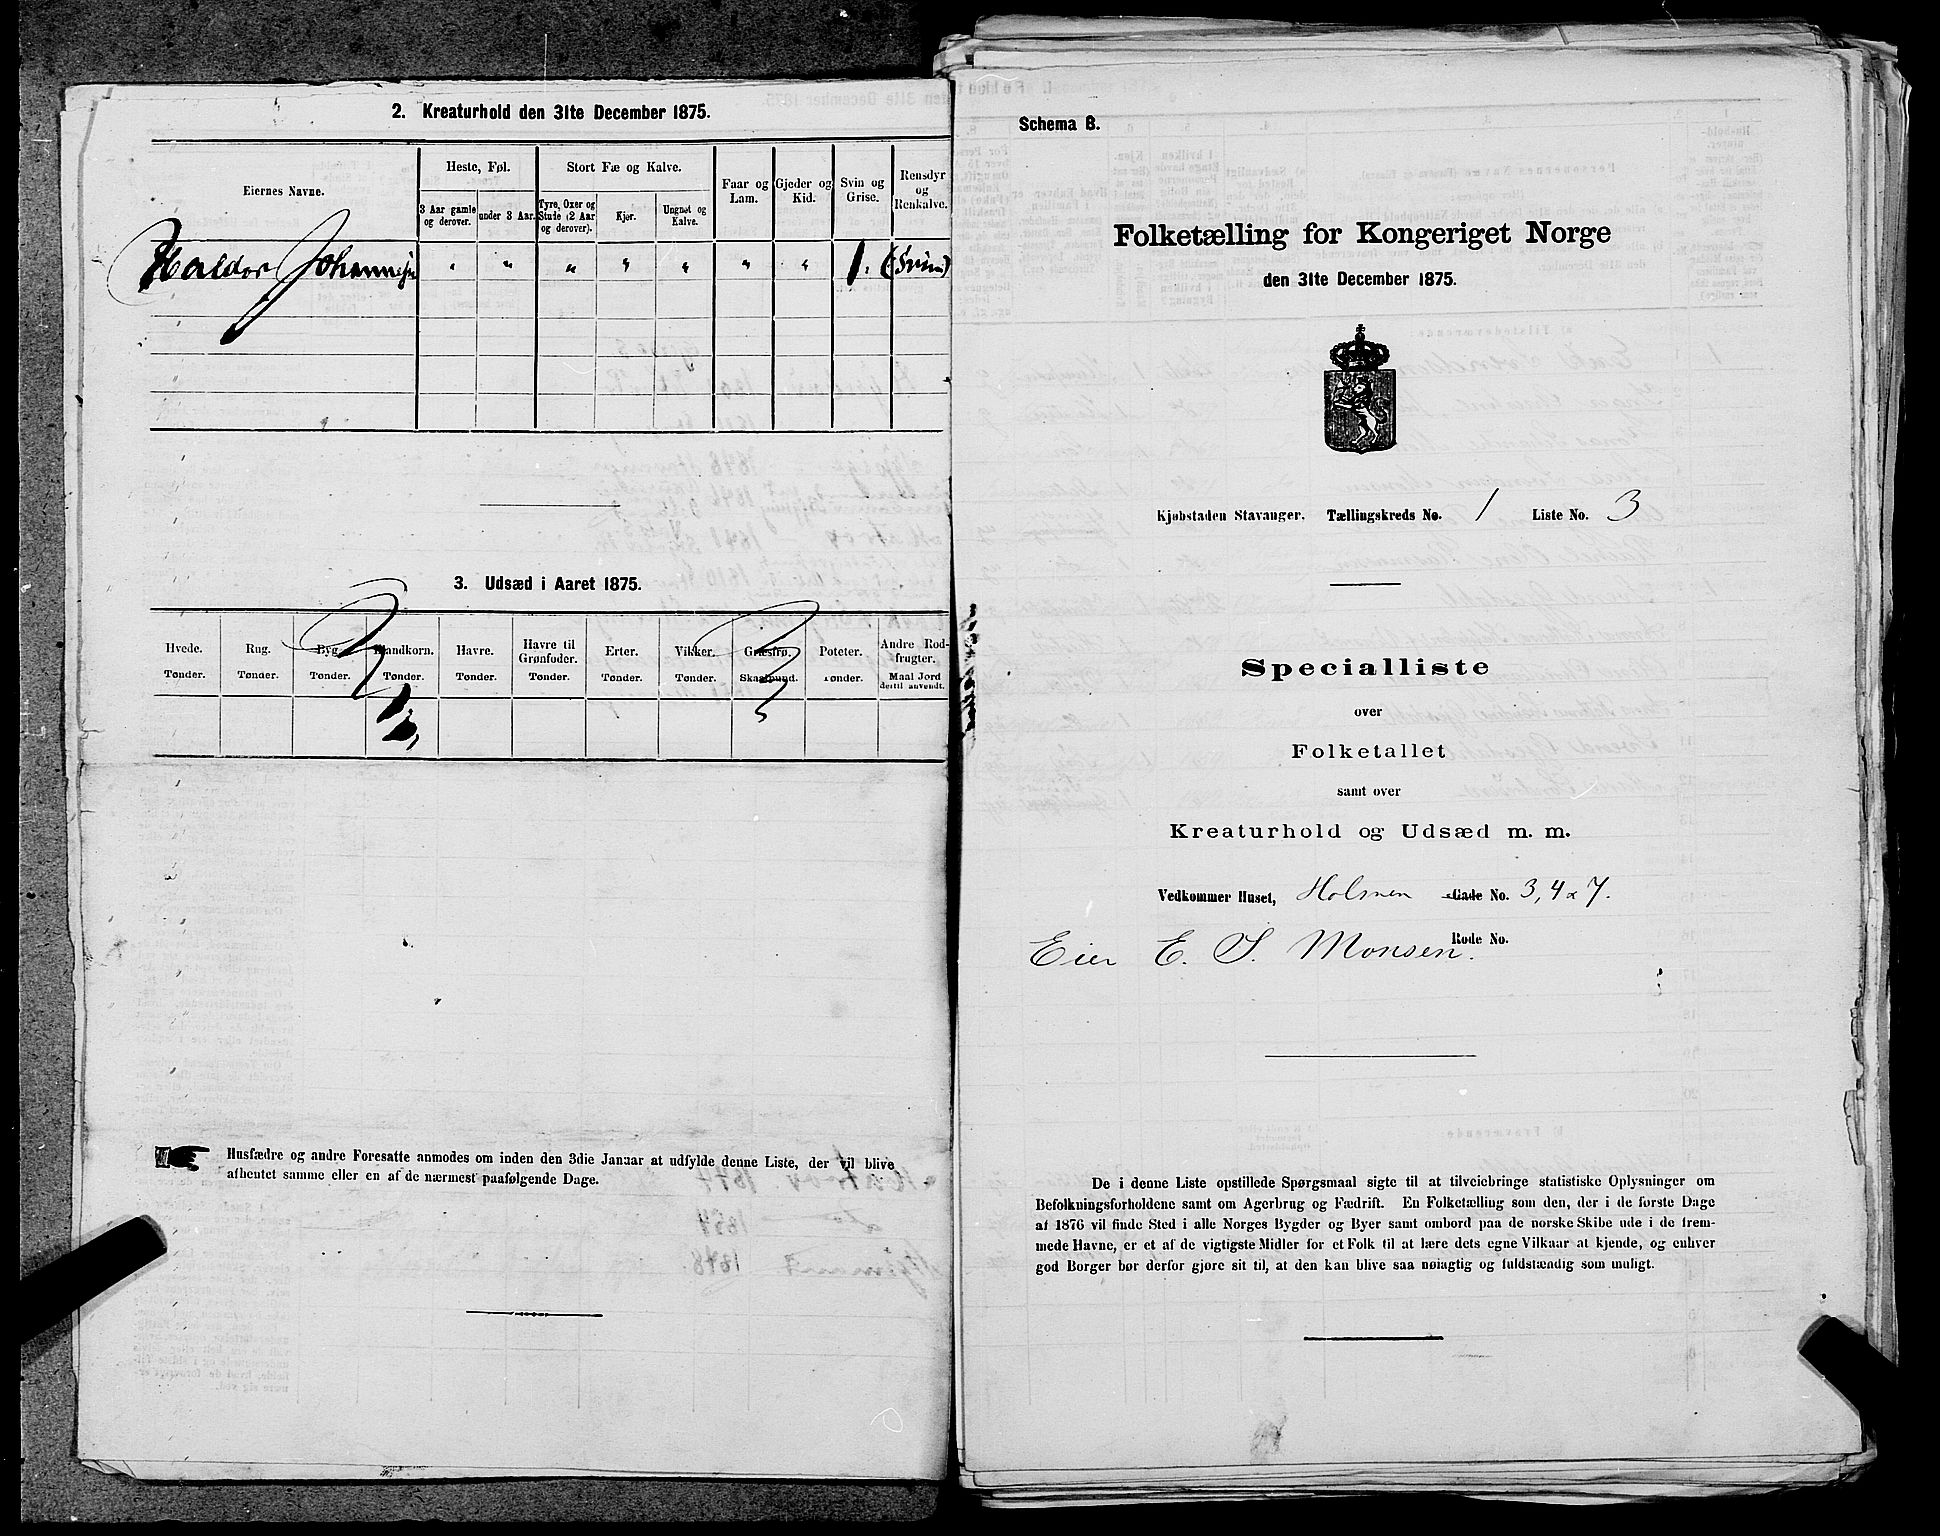 2. Kreaturhold den 31te December 1875.
Eiernes Navne.
Heste, Føl.
3 Aar gamle og derover.
under 3 Aar.
Stort Fæ og Kalve.
Tyre, Oxer og Stude (2 Aar og derover).
Kjør.
Ungnøt og Kalve.
Faar og Lam.
Gjeder og Kid.
Svin og Grise.
Rensdyr og Renkalve.
Haldor Johannesen " " " " " " " 1. (Svin)
3. Udsæd i Aaret 1875.
Hvede. Tønder.
Rug. Tønder.
Byg. Tønder.
Blandkorn. Tønder.
Havre. Tønder.
Havre til Grønfoder. Tønder.
Erter. Tønder.
Vikker. Tønder.
Græsfrø. Skaalpund.
Poteter. Tønder.
Andre Rodfrugter. Maal Jord dertil anvendt.
Husfædre og andre Foresatte anmodes om inden den 3die Januar at udfylde denne Liste, der vil blive
afhentet samme eller en af de nærmest paafølgende Dage.
Schema B.
Folketælling for Kongeriget Norge
den 31te December 1875.
Kjøbstaden Stavanger. Tællingskreds No. 1 Liste No. 3
Specialliste
over
Folketallet
samt over
Kreaturhold og Udsæd m. m.
Vedkommer Huset, Holmen Gade No. 3, 4 & 7.
Rode No.
Eier E. S. Monsen.
De i denne Liste opstillede Spørgsmaal sigte til at tilveiebringe statistiske Oplysninger om
Befolkningsforholdene samt om Agerbrug og Fædrift. En Folketælling som den, der i de første Dage
af 1876 vil finde Sted i alle Norges Bygder og Byer samt ombord paa de norske Skibe ude i de frem-
mede Havne, er et af de vigtigste Midler for et Folk til at lære dets egne Vilkaar at kjende, og enhver
god Borger bør derfor gjøre sit til, at den kan blive saa nøiagtig og fuldstændig som muligt.